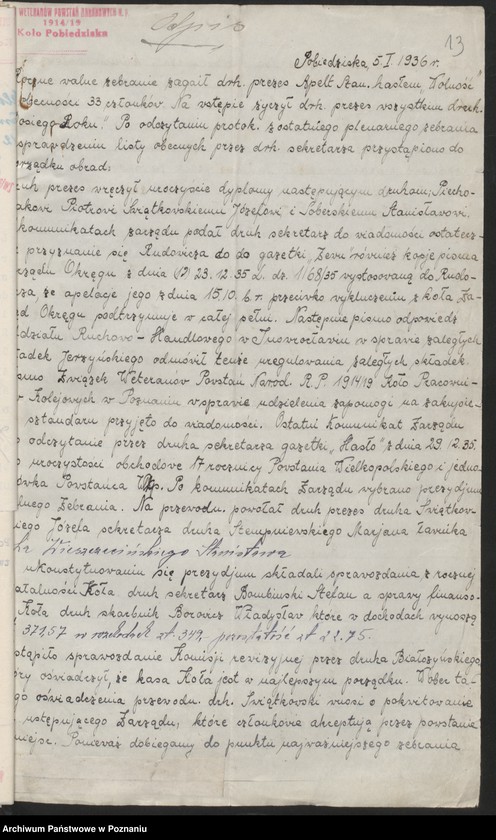 WETERANÓW POWSTAŃ NARODOWYCH R. P.
1914/19
Koło Pobiedziska
Odpis
13
Pobiedziska, 5 I 1936 r.
walne zebranie zagaił drh. prezes Apelt Stan. hasłem "Wolność"
obecności 33 członków. Na wstępie życzył drh. prezes wszystkim druch.
Roku." Po odczytaniu protok. z ostatniego plenarnego zebrania
sprawdzeniu listy obecnych przez drh. sekretarza przystąpiono do
rządku obrad:
uh prezes wręczył uroczyście dyplomy następującym druhom; Piecho-
akowi Piotrowi Świątkowskiemu Józefowi i Soberskiemu Stanisławowi.
komunikatach zarządu podał druh sekretarz do wiadomości ostatecz-
przyznanie się Rudowicza do gazetki "Zew" również kopję pisma
rządu Okręgu z dnia 23.12.35 l. dz. 1168/35 wystosowaną do Rudo-
cza, że apelację jego z dnia 15.10. b. r. przeciwko wykluczeniu z koła, Za-
d Okręgu podtrzymuje w całej pełni. Następnie pismo odpowiedź
działu Ruchowo-Handlowego w Inowrocławiu w sprawie zaległych
ładek Jerzyńskiego odmówił tenże uregulowania zaległych składek
ismo Związek Weteranów Powstań Narod. R. P. 1914/19 Koło Pracowni-
w Kolejowych w Poznaniu w sprawie udzielenia zapomogi na zakupie-
sztandaru przyjęto do wiadomości. Ostatni Komunikat Zarządu
odczytanie przez druha sekretarza gazetki "Hasło" z dnia 29.12.35.
o uroczystości obchodowe 17 rocznicy Powstania Wielkopolskiego i jedno-
ówka Powstańca Wlkp. Po komunikatach Zarządu wybrano prezydjum
lnego Zebrania. Na przewodn. powołał druh prezes druha Świątkow-
iego Józefa sekretarza druha Stempniewskiego Marjana ławnika
Stanisława
ukonstytuowaniu się prezydjum składali sprawozdania z rocznej
ałalności Koła druh sekretarz Bombiński Stefan a sprawy finanso-
Koła druh skarbnik Borowicz Władysław które w dochodach wynoszą
371,57 w rozchodach zł. 349,- pozostałość zł 22.75.
stąpiło sprawozdanie Komisji rewizyjnej przez druha Białoszyńskiego,
óry oświadczył, że kasa Koła jest w najlepszym porządku. Wobec ta-
go oświadczenia przewodn. drh. Świątkowski wnosi o pokwitowanie
ustępującego Zarządu, które członkowie akceptują przez powstanie
miejsc. Ponieważ dobiegamy do punktu najważniejszego zebrania
Archiwum Państwowe w Poznaniu